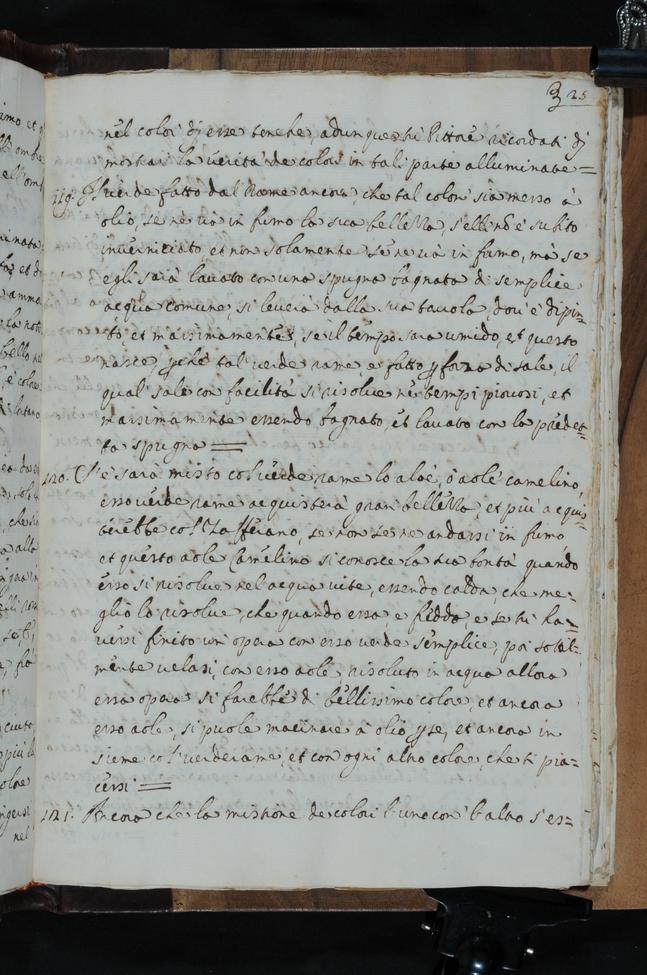 325
nel color di esse tenebre, adunque tu Pittore ricordati di
mostrar la verità de colori in tali parte alluminate =
119. Il verde fatto dal Rame ancora, che tal color sia messo à
olio, se ne và in fumo la sua bellezza, s'ell'nō è subito
inverniciato, et non solamente se ne và in fumo, mà se
egli sarà lavato con una spugna bagnata di semplice
acqua comune, si leverà dalla sua tavola, dov'è dipin-
to, et massimamente, se il tempo sarà umido, et questo
nasce, pche tal verde rame è fatto p forza di sale, il
qual sale con facilità si risolue ne tempi piovosi, et
massimamente essendo bagnato, et lavato con la predet-
ta spugna =
120. Se sarà misto col verde rame lo aloè, ò aolè camelino,
esso verde rame acquisterà gran bellezza, et più acqui-
terebbe col Zafferano, se non se ne andassi in fumo
et questo aole Camelino si conosce la sua bontà quando
esso si risolue nel acqua vite, essendo calda, che me-
glio lo risolue, che quando essa è fredda, e se tu ha-
vessi finito un' opera con esso verde semplice, poi sotil-
mente velassi, con esso aolè risoluto in acqua allora
essa opera si farebbe di bellissimo colore, et ancora
esso aole, si puole macinare à olio pse, et ancora in
sieme col verderame, et con ogni altro colore, che ti pia-
cessi =
121. Ancora che la mistione de colori l'uno con l'altro s'es=